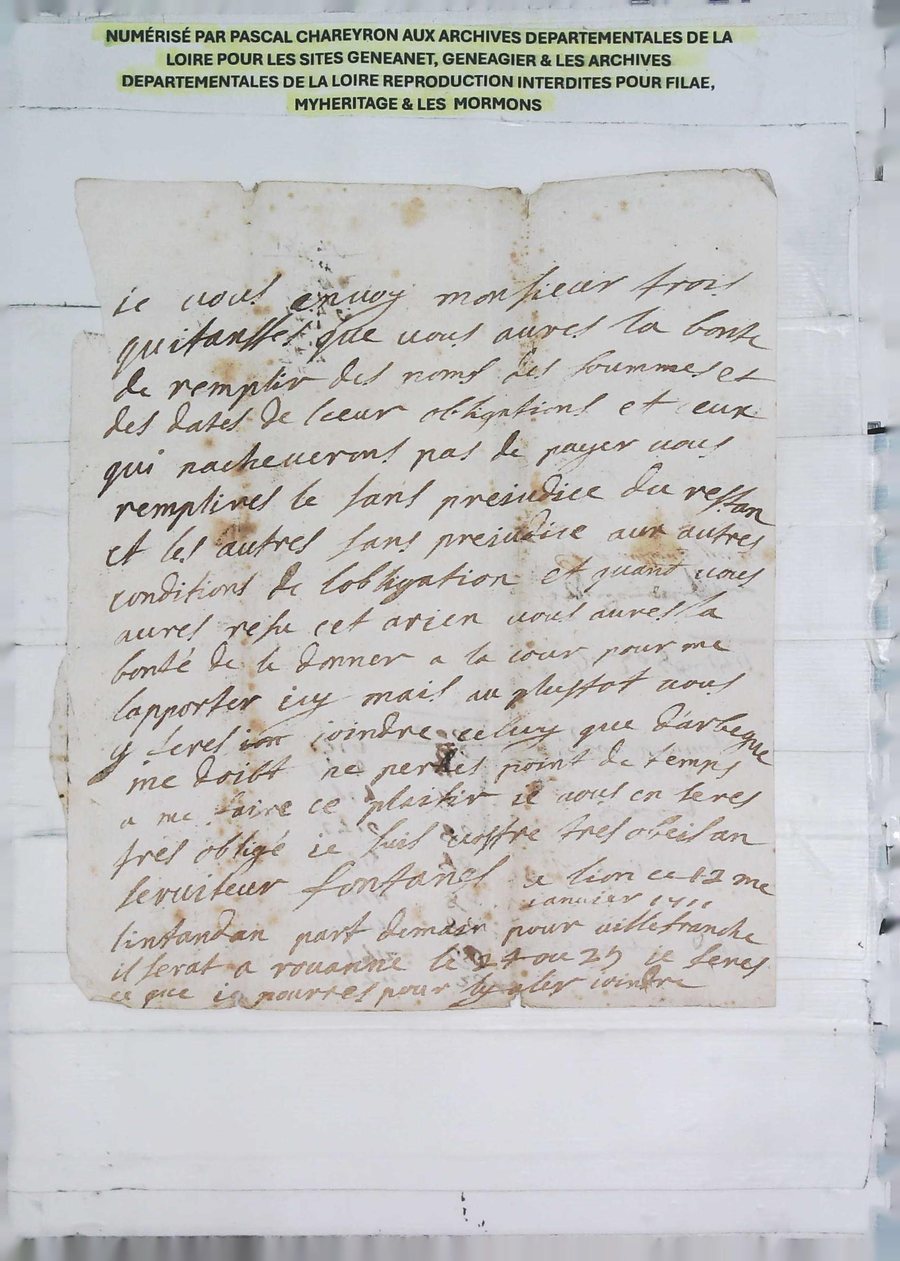 NUMÉRISÉ PAR PASCAL CHAREYRON AUX ARCHIVES DEPARTEMENTALES DE LA
LOIRE POUR LES SITES GENEANET, GENEAGIER & LES ARCHIVES
DEPARTEMENTALES DE LA LOIRE REPRODUCTION INTERDITES POUR FILAE,
MYHERITAGE & LES MORMONS
ie vous envoy monsieur trois
quitansses que vous aures la bonte
de remplir des noms des soummes et
des dates de lœur obligations et ceux
qui nacheveront pas de payer vous
remplires le sans preiudice du restan
et les autres sans preiudice aux autres
conditions de lobligation et quant vous
aures resu cet arien vous aures la
bonté de le donner a la cour pour me
lapporter icy mais au plustot vous
y feres ioindre celuy que darbeque
me doibt ne perdes point de temps
a me faire ce plaisir ie vous en seres
tres obligé ie suis vostre tres obeisan
serviteur fontanes a lion ce 12 me
ianvier
lintandan part demain pour villefranche
il serat a rouanne le 24 ou 25 ie feres
ce que ie pourres pour ly aler ioindre